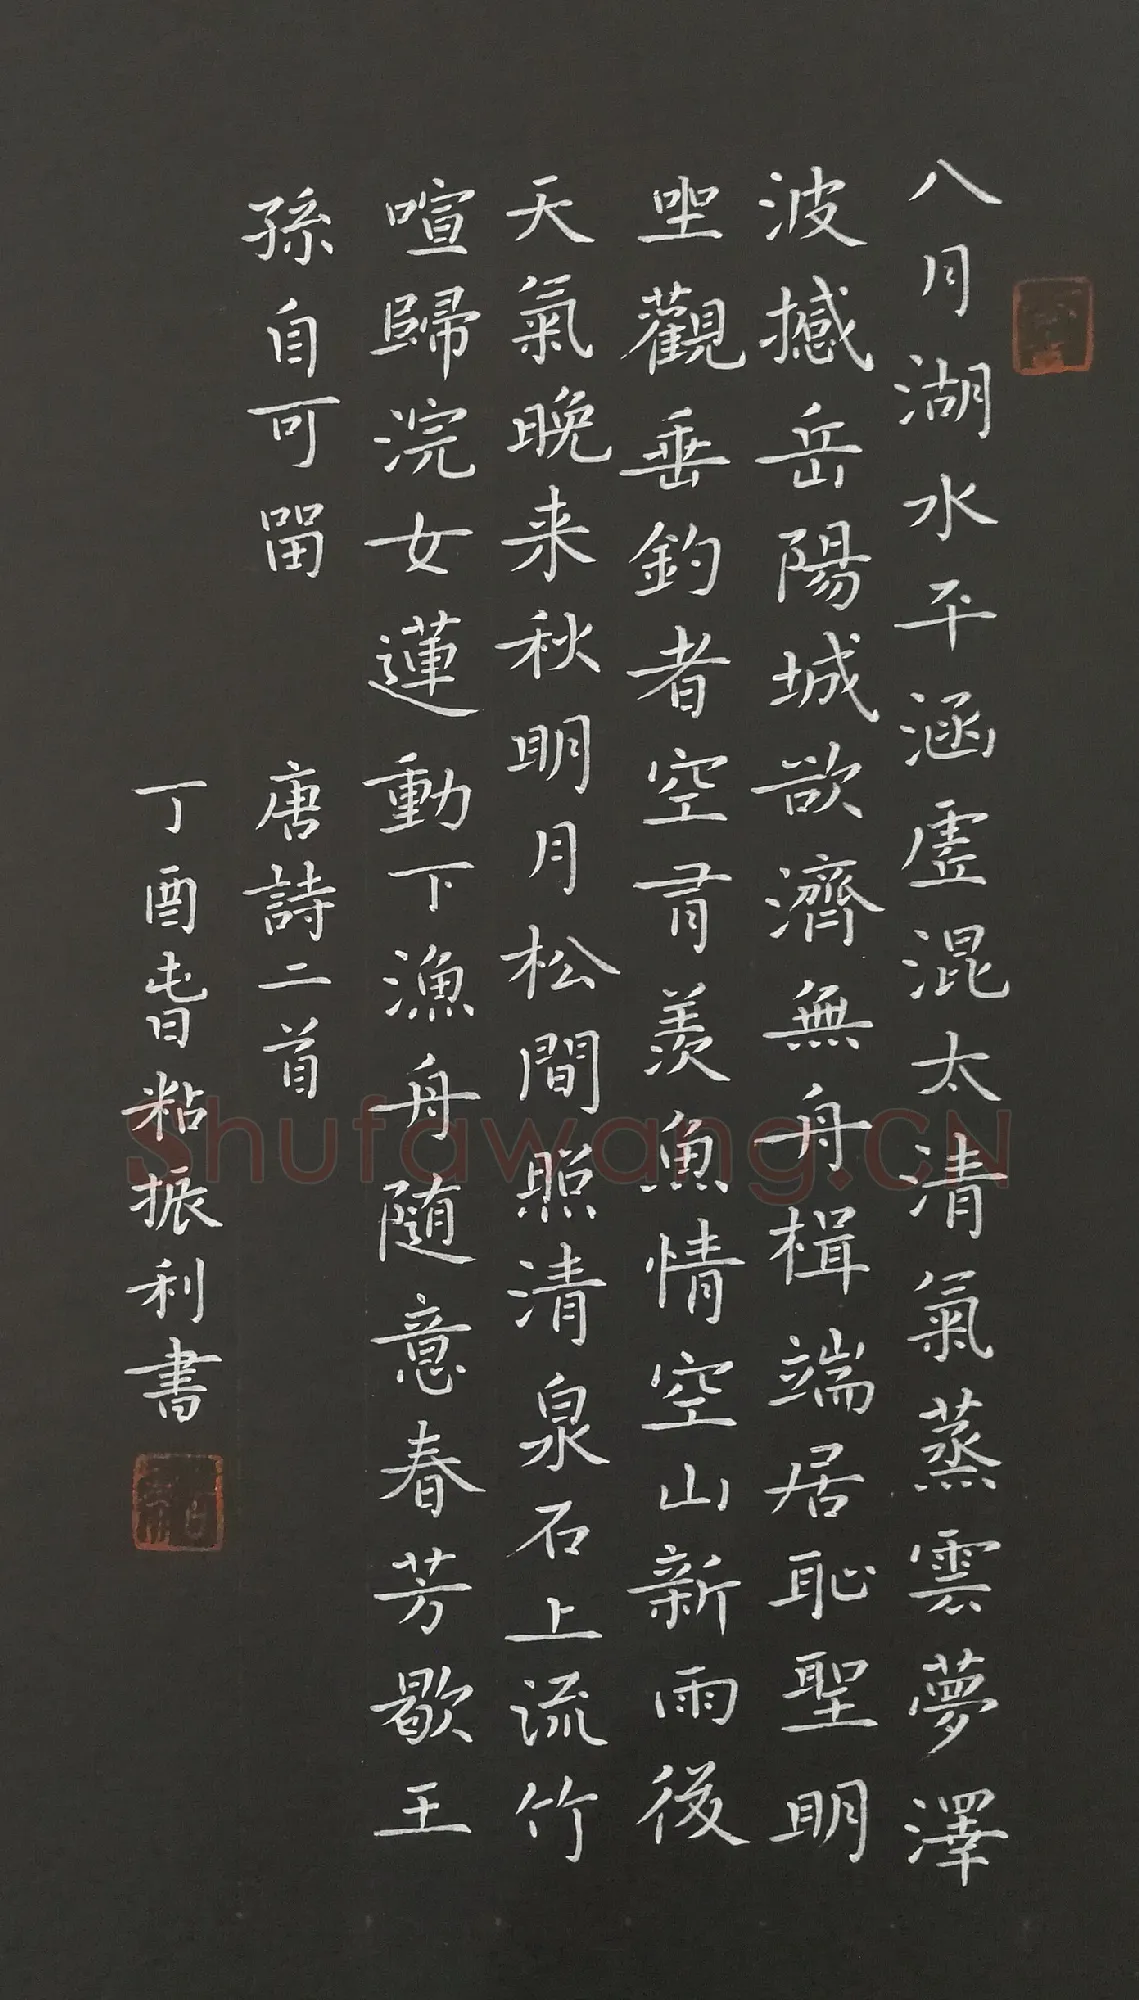 八月湖水平涵虛混太清氣蒸雲夢澤
波撼岳陽城欲濟無舟楫端居恥聖明
坐觀垂釣者空有羨魚情空山新雨後
天氣晚来秋明月松間照清泉石上流竹
喧歸浣女蓮動下漁舟隨意春芳歇王
孫自可留
唐詩二首
丁酉春粘振利書
Shufawang.CN